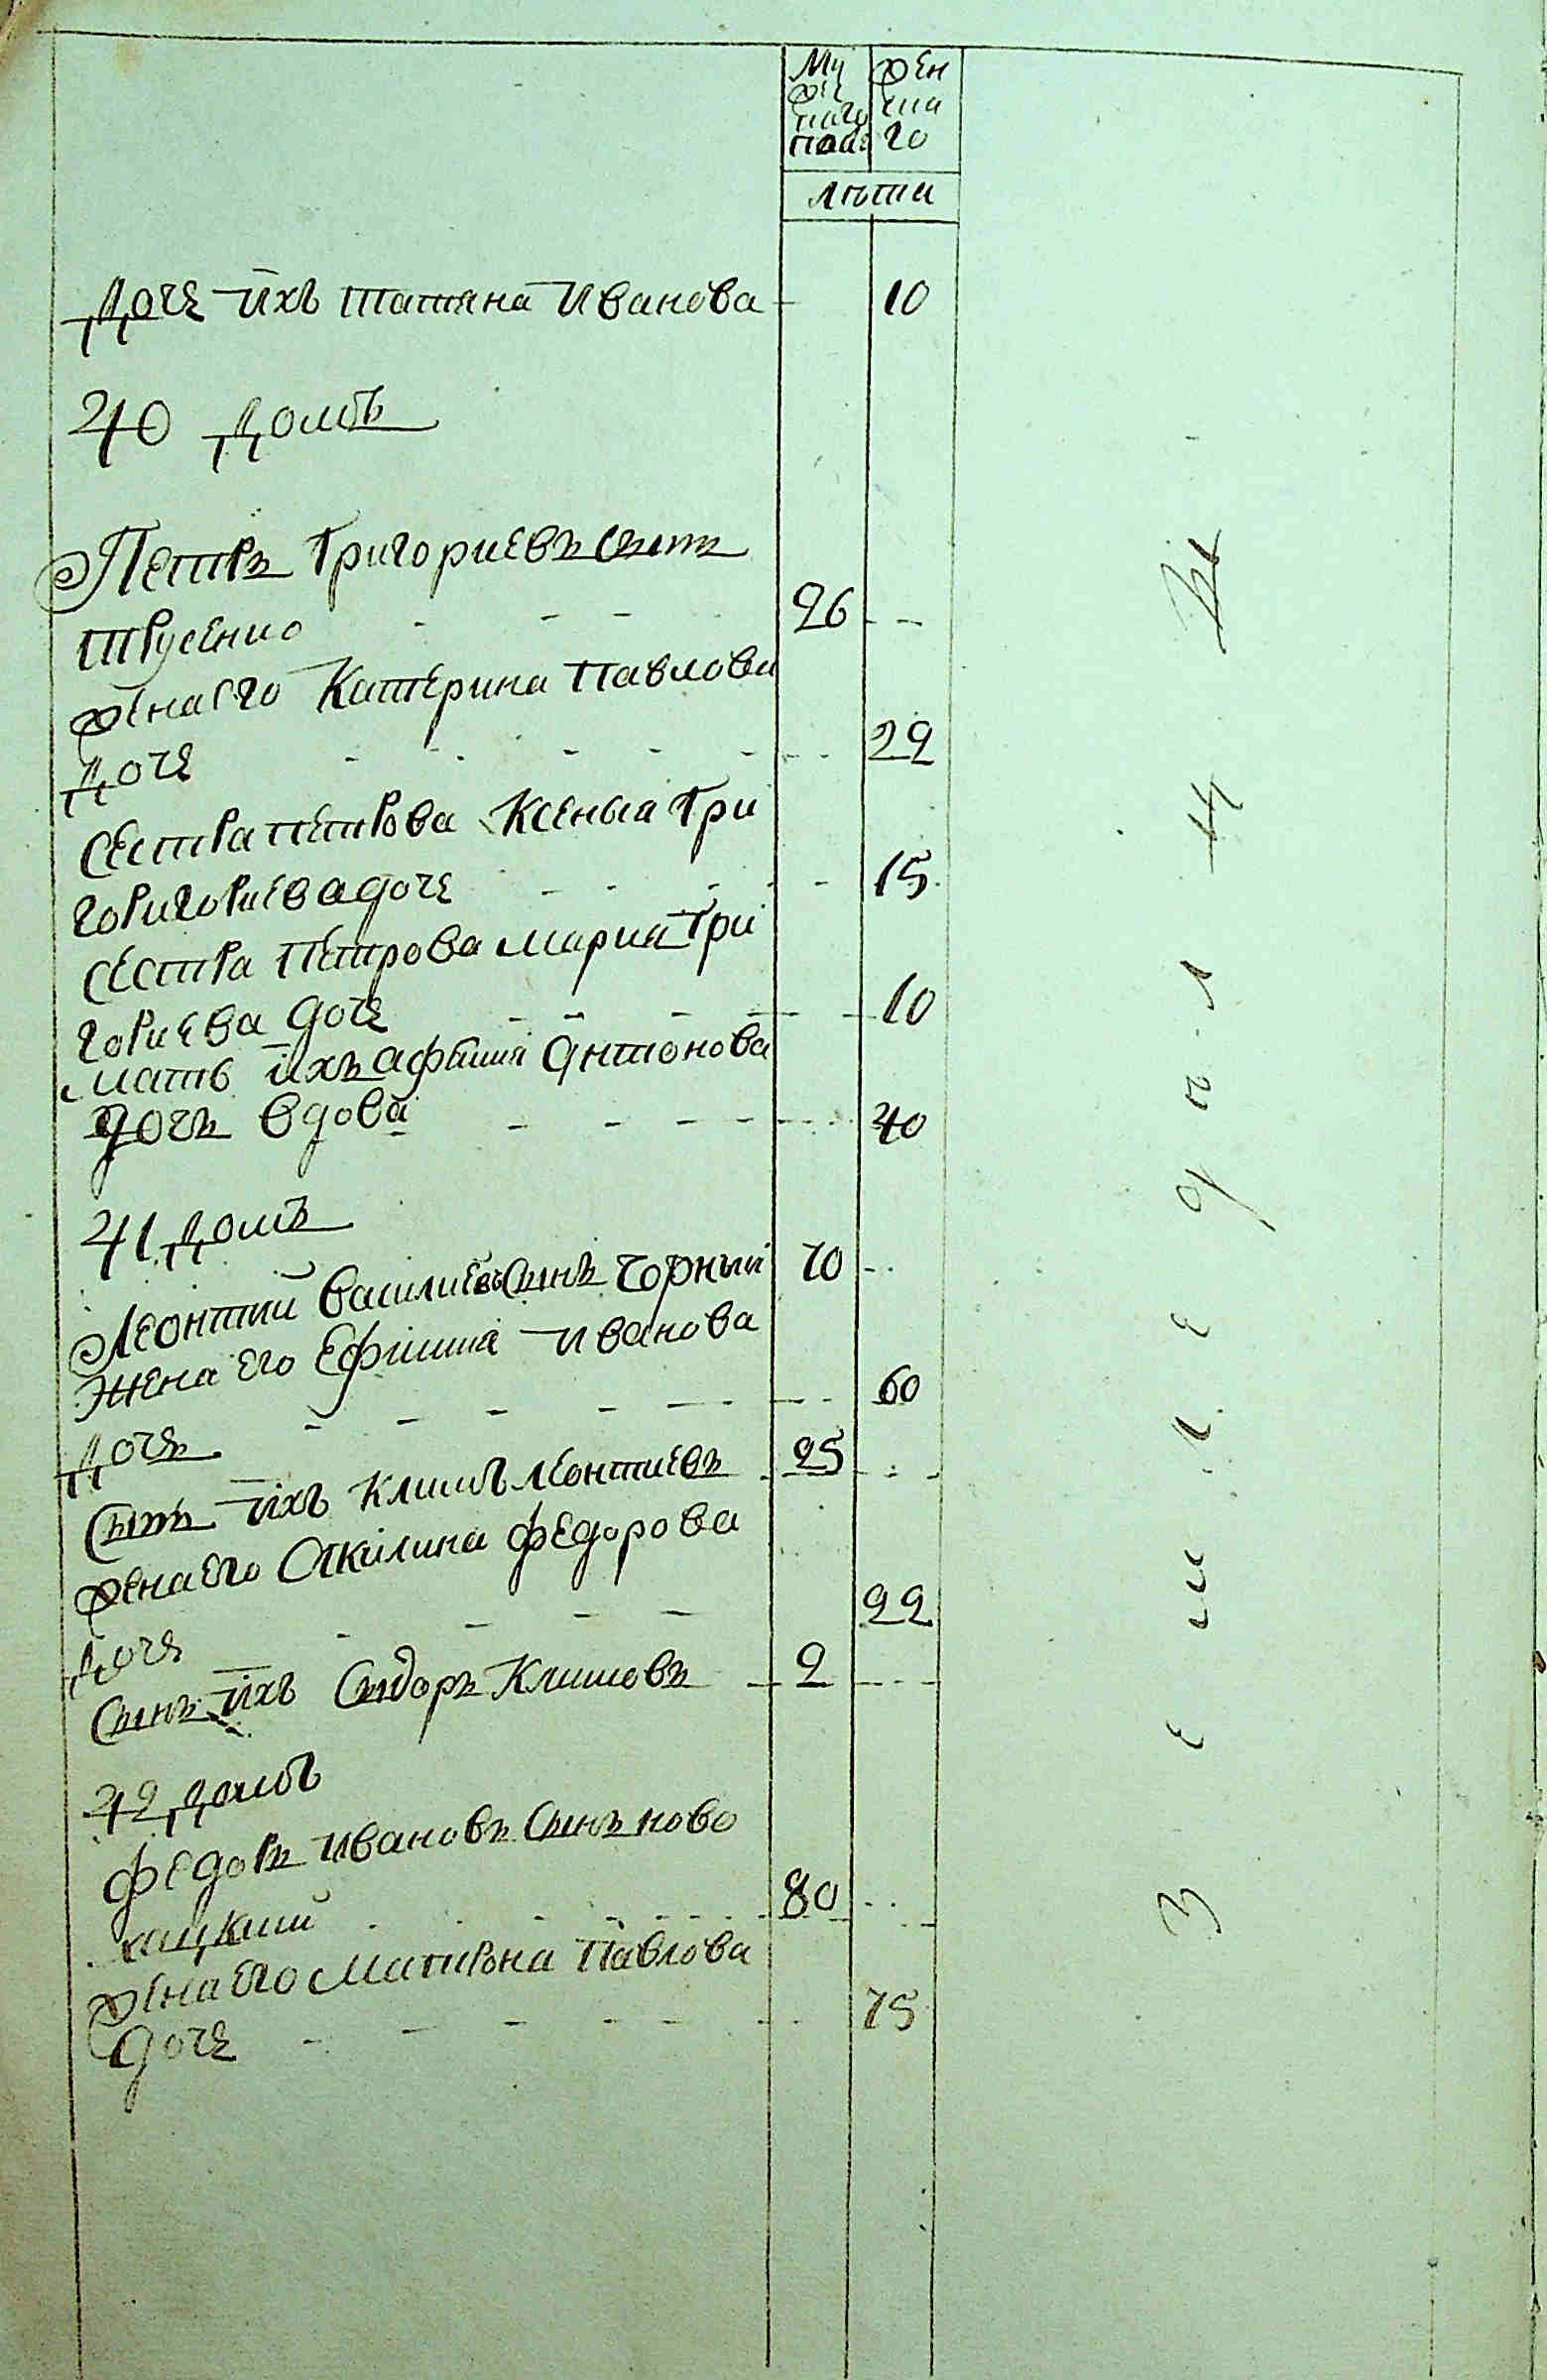 Му жен
же ска
наго го
пола:
лѣта
Дочь ихъ Татяна Иванова 10
40 Домъ
Петръ Григориевъ сынъ
Трусенко 26
жена его Катерина Павлова
дочь 22
сестра петрова Ксенья Гри
горигориева дочь 15
сестра Петрова Мариа Гри
гориева дочь 10
мать ихъ афимиа Антонова
дочь вдова 40
41 Домъ
Леонтий Василиевъ сынъ чорный 70
Жена его Ефимиа Иванова
дочь 60
Сынъ ихъ Климъ леонтиевъ 25
жена его Окилина федорова
дочь 22
Сынъ ихъ Сыдоръ Климовъ 2
42 домъ
федоръ Ивановъ Сынъ ново
хацкий 80
жена его Матрона Павлова
дочь 75
Земледѣлцы